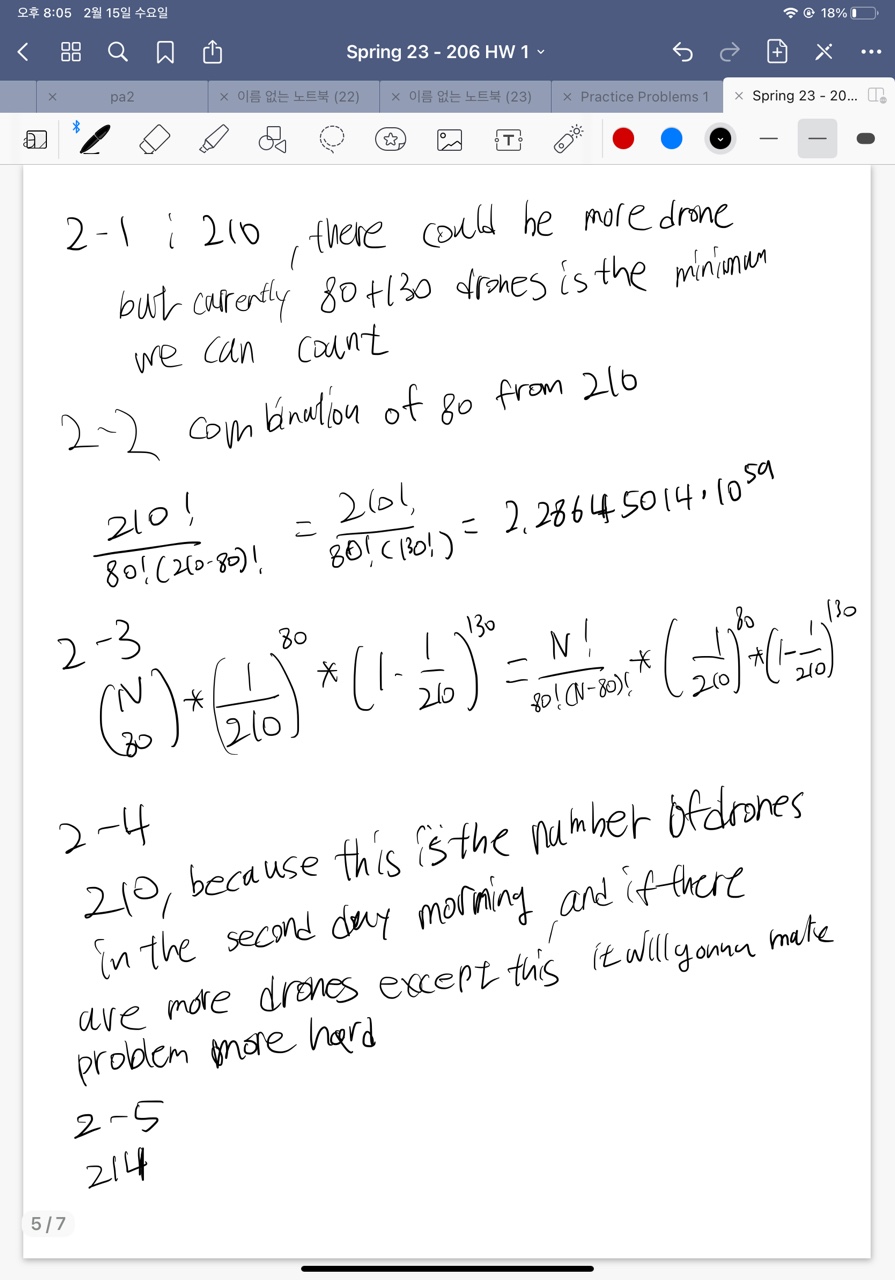 오후 8:05 2월 15일 수요일
18%
Spring 23 - 206 HW 1
pa2
이름 없는 노트북 (22)
이름 없는 노트북 (23)
Practice Problems 1
Spring 23 - 20...
2-1 ; 210, there could be more drone
but currently 80+130 drones is the minimum
we can count
2-2 combination of 80 from 210
210! / 80!(210-80)! = 210! / 80!(130!) = 2.28645014·10^59
2-3
(N 80) * (1/210)^80 * (1 - 1/210)^130 = N! / 80!(N-80)! * (1/210)^80 * (1 - 1/210)^130
2-4
210, because this is the number of drones
in the second day morning, and if there
are more drones except this it will gonna make
problem more hard
2-5
214
5/7